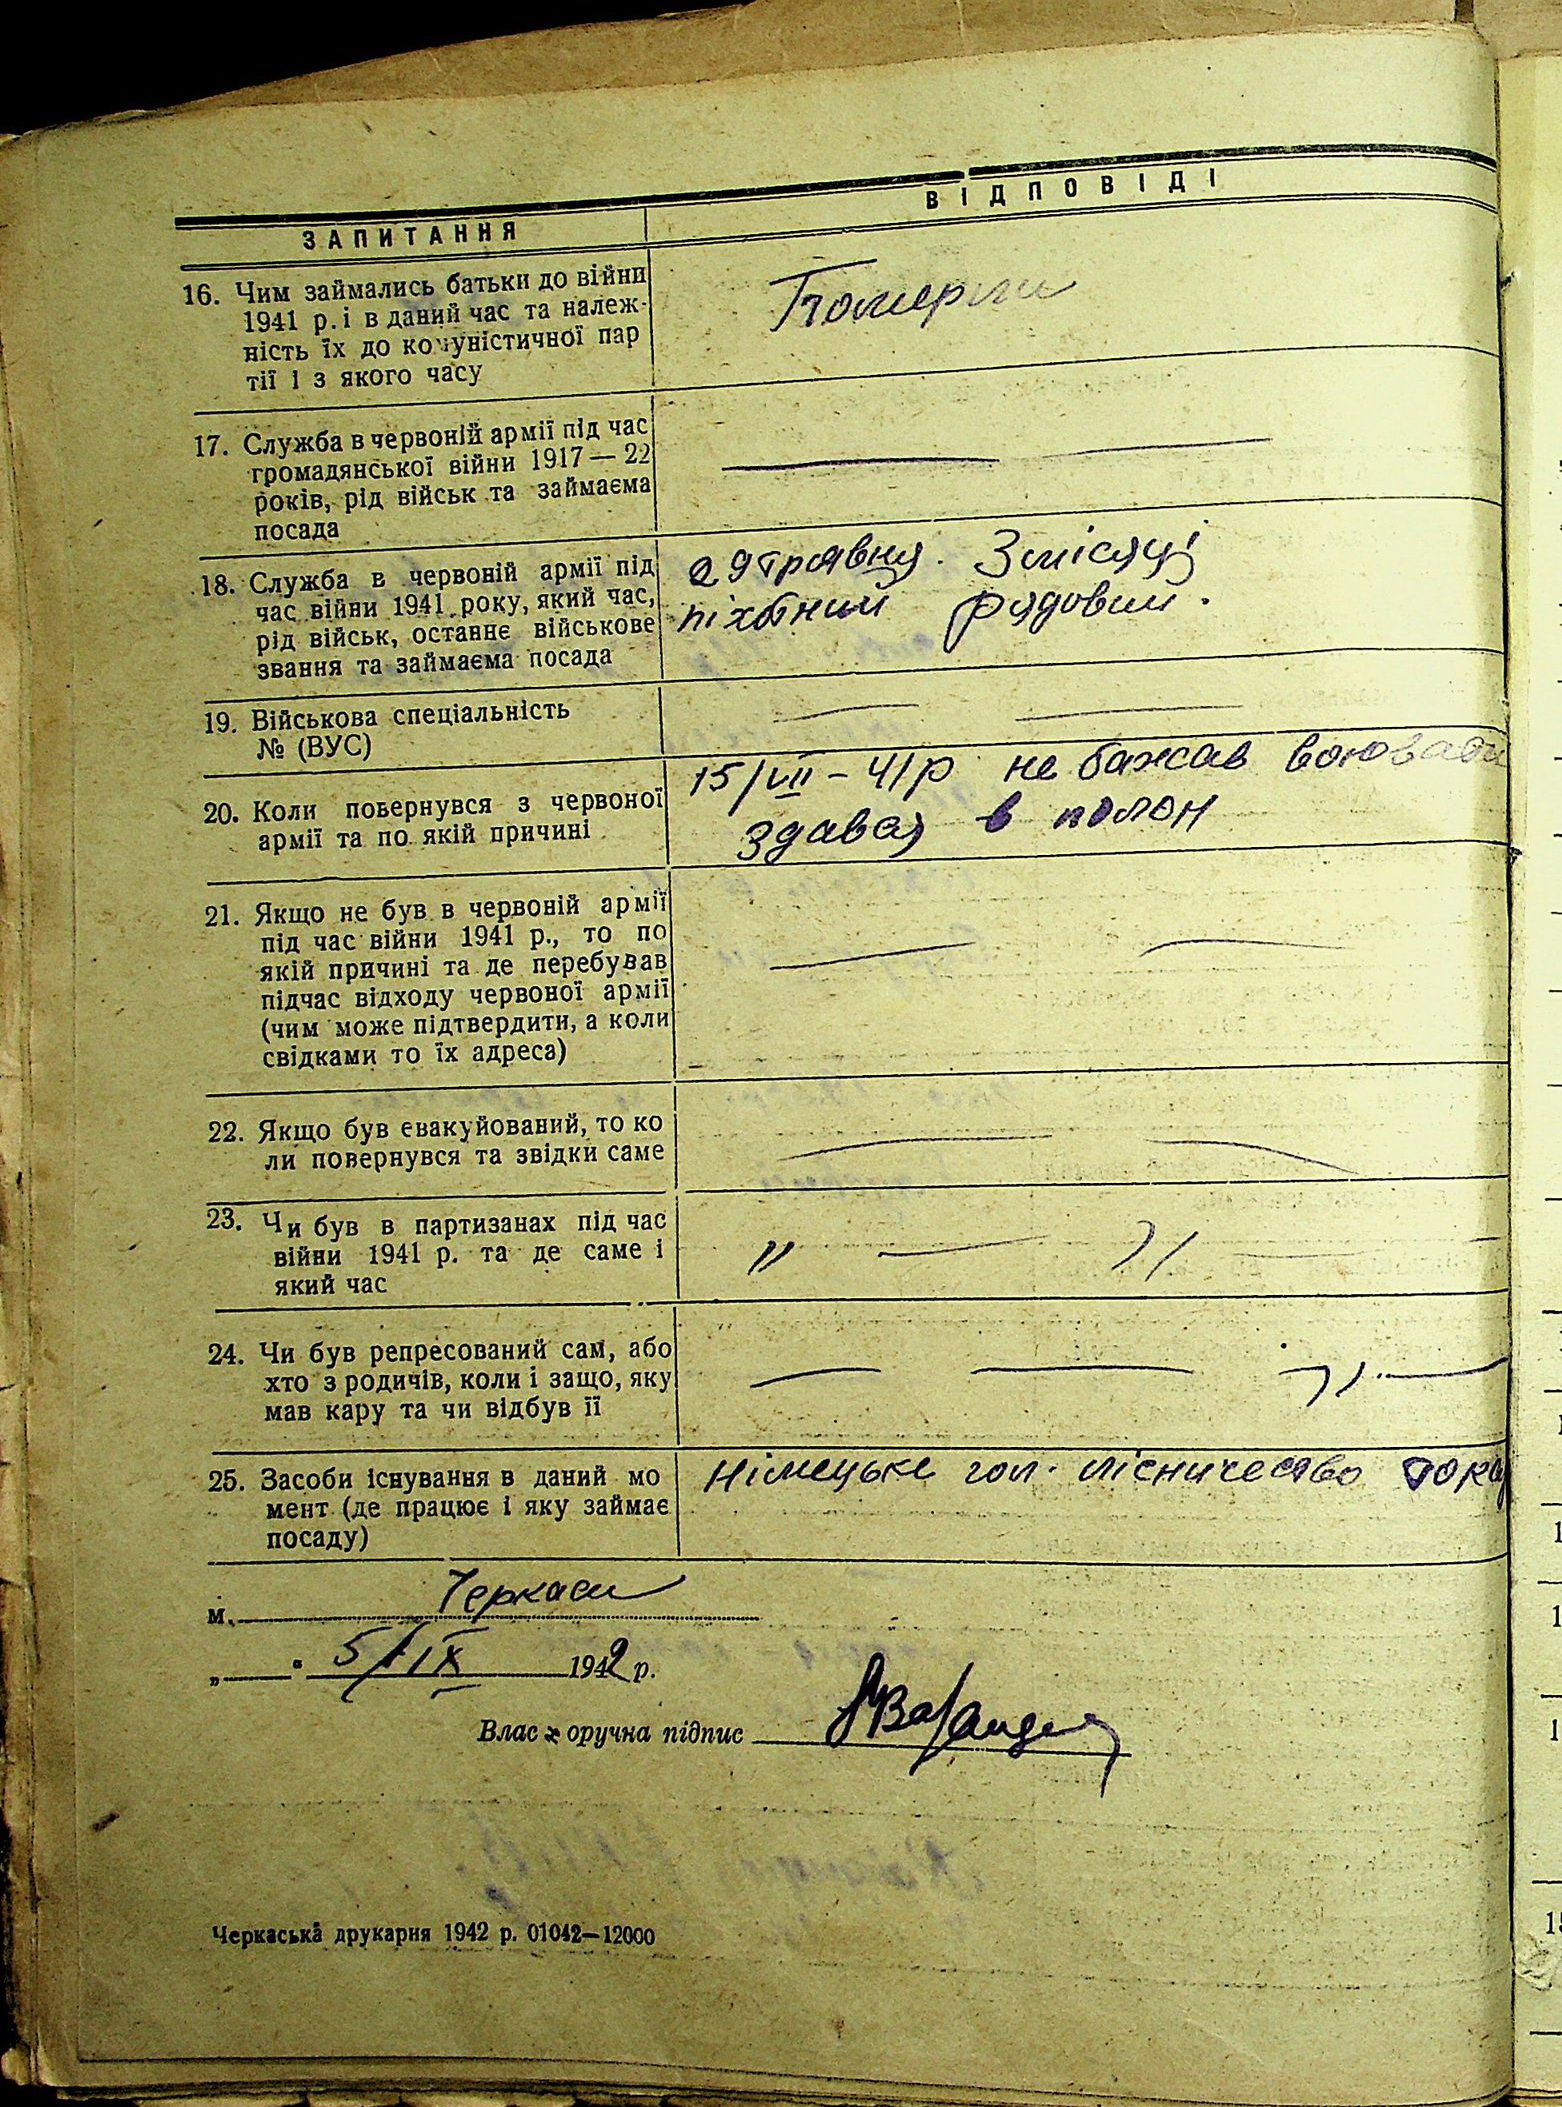 ЗАПИТАННЯ
ВІДПОВІДІ
16. Чим займались батьки до війни
1941 р. і в даний час та належ-
ність їх до комуністичної пар
тії і з якого часу
Померли
17. Служба в червоній армії під час
громадянської війни 1917—22
років, рід військ та займаєма
посада
18. Служба в червоній армії під
час війни 1941 року, який час,
рід військ, останнє військове
звання та займаєма посада
29 травня. 3 місяці
піхотний рядовий.
19. Військова спеціальність
№ (ВУС)
20. Коли повернувся з червоної
армії та по якій причині
15/VII – 41 р не бажав воювати
здавая в полон
21. Якщо не був в червоній армії
під час війни 1941 р., то по
якій причині та де перебував
підчас відходу червоної армії
(чим може підтвердити, а коли
свідками то їх адреса)
22. Якщо був евакуйований, то ко
ли повернувся та звідки саме
23. Чи був в партизанах під час
війни 1941 р. та де саме і
який час
" — " —
24. Чи був репресований сам, або
хто з родичів, коли і защо, яку
мав кару та чи відбув її
25. Засоби існування в даний мо
мент (де працює і яку займає
посаду)
Німецьке гол. лісничество
м. Черкаси
„ “ 5/IX 1942 р.
Власноручна підпис
Черкаська друкарня 1942 р. 01042—12000